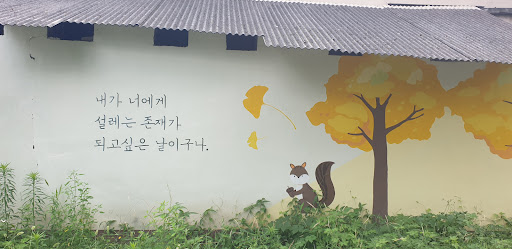 내가 너에게
설레는 존재가
되고싶은 날이구나.